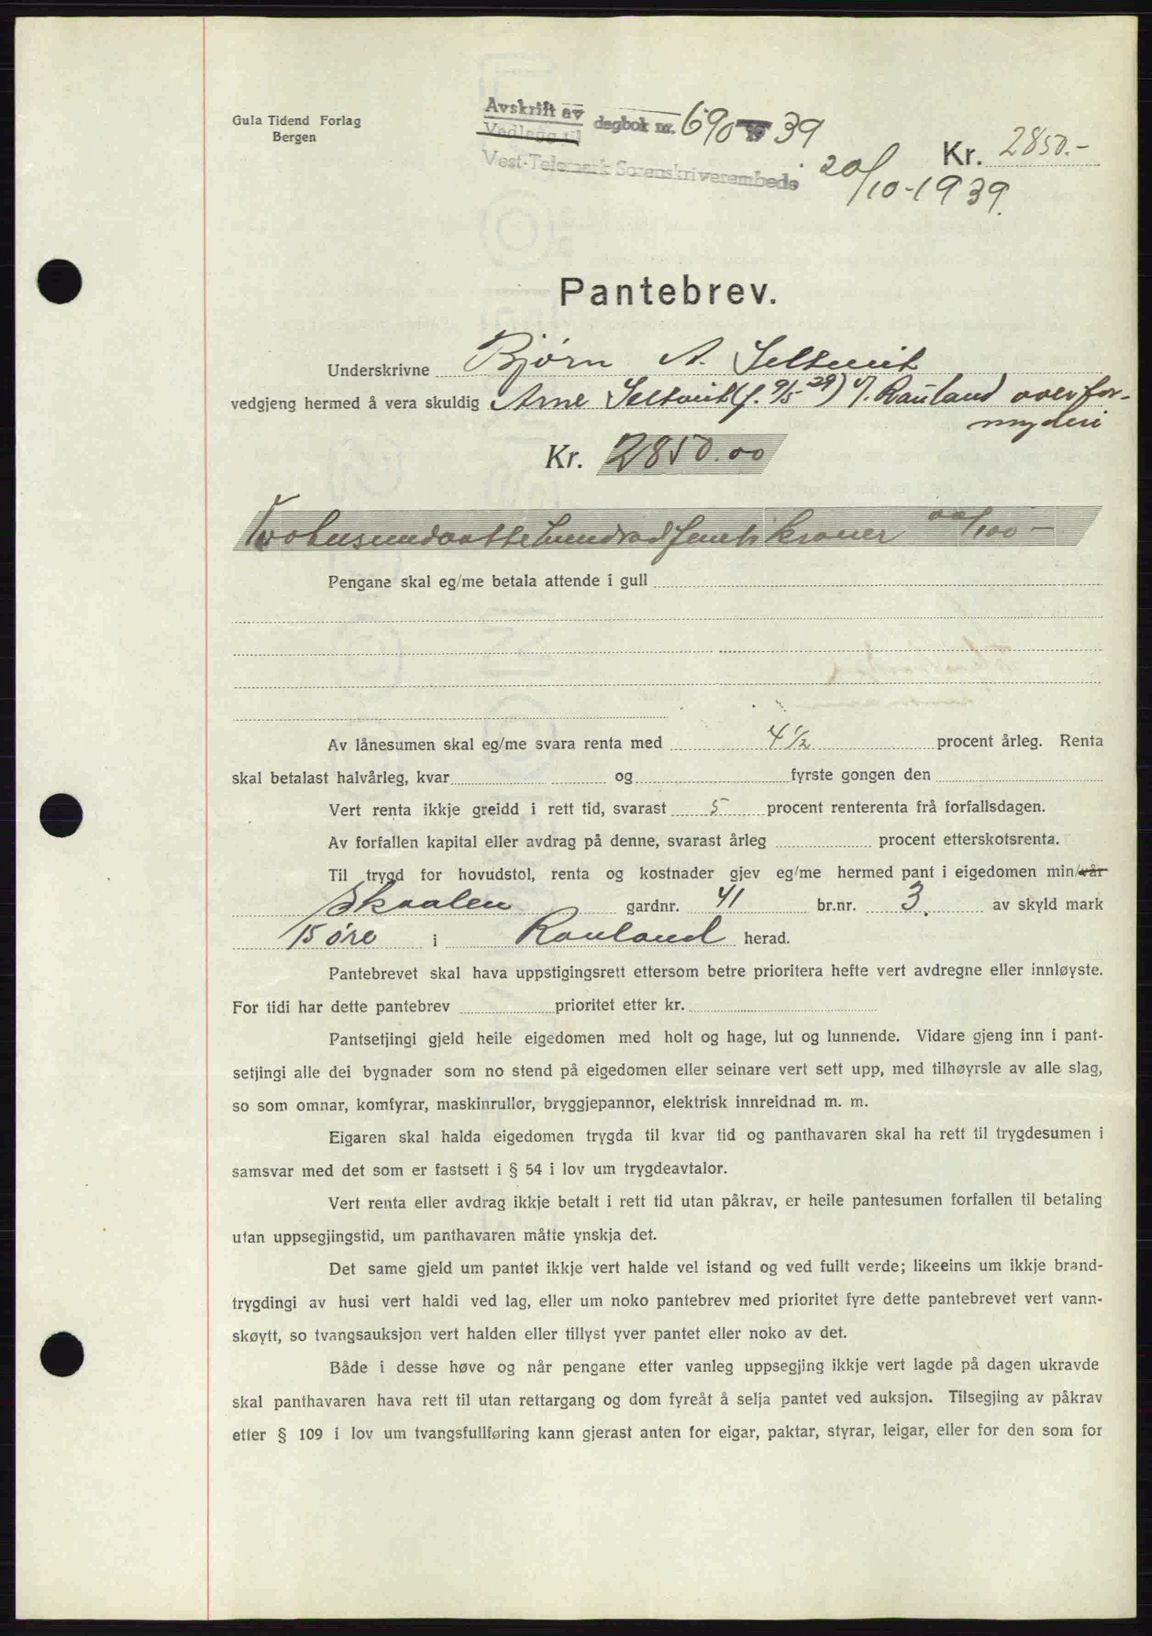 Gula Tidend Forlag
Bergen
Avskrift av
Vedlegg til
dagbok nr. 690 39
Vest-Telemark Sorenskriverembede
20/10-1939.
Kr. 2850.-
Pantebrev.
Underskrivne Bjørn A. Seltveit
vedgjeng hermed å vera skuldig Arne Seltveit (f. 9/5-29) v/. Rauland overfor-
myderi
Kr. 2850.00
Totusundaattehundrad femti kroner 00/100 -
Pengane skal eg/me betala attende i gull
Av lånesumen skal eg/me svara renta med 4 1/2 procent årleg. Renta
skal betalast halvårleg, kvar og fyrste gongen den
Vert renta ikkje greidd i rett tid, svarast 5 procent renterenta frå forfallsdagen.
Av forfallen kapital eller avdrag på denne, svarast årleg procent etterskotsrenta.
Til trygd for hovudstol, renta og kostnader gjev eg/me hermed pant i eigedomen min/vår
Skaalen gardnr. 41 br.nr. 3. av skyld mark
15 øre i Rauland herad.
Pantebrevet skal hava uppstigingsrett ettersom betre prioritera hefte vert avdregne eller innløyste.
For tidi har dette pantebrev prioritet etter kr.
Pantsetjingi gjeld heile eigedomen med holt og hage, lut og lunnende. Vidare gjeng inn i pant-
setjingi alle dei bygnader som no stend på eigedomen eller seinare vert sett upp, med tilhøyrsle av alle slag,
so som omnar, komfyrar, maskinrullor, bryggjepannor, elektrisk innreidnad m. m.
Eigaren skal halda eigedomen trygda til kvar tid og panthavaren skal ha rett til trygdesumen i
samsvar med det som er fastsett i § 54 i lov um trygdeavtalor.
Vert renta eller avdrag ikkje betalt i rett tid utan påkrav, er heile pantesumen forfallen til betaling
utan uppsegjingstid, um panthavaren måtte ynskja det.
Det same gjeld um pantet ikkje vert halde vel istand og ved fullt verde; likeeins um ikkje brand-
trygdingi av husi vert haldi ved lag, eller um noko pantebrev med prioritet fyre dette pantebrevet vert vann-
skøytt, so tvangsauksjon vert halden eller tillyst yver pantet eller noko av det.
Både i desse høve og når pengane etter vanleg uppsegjing ikkje vert lagde på dagen ukravde
skal panthavaren hava rett til utan rettargang og dom fyreåt å selja pantet ved auksjon. Tilsegjing av påkrav
etter § 109 i lov um tvangsfullføring kann gjerast anten for eigar, paktar, styrar, leigar, eller for den som for